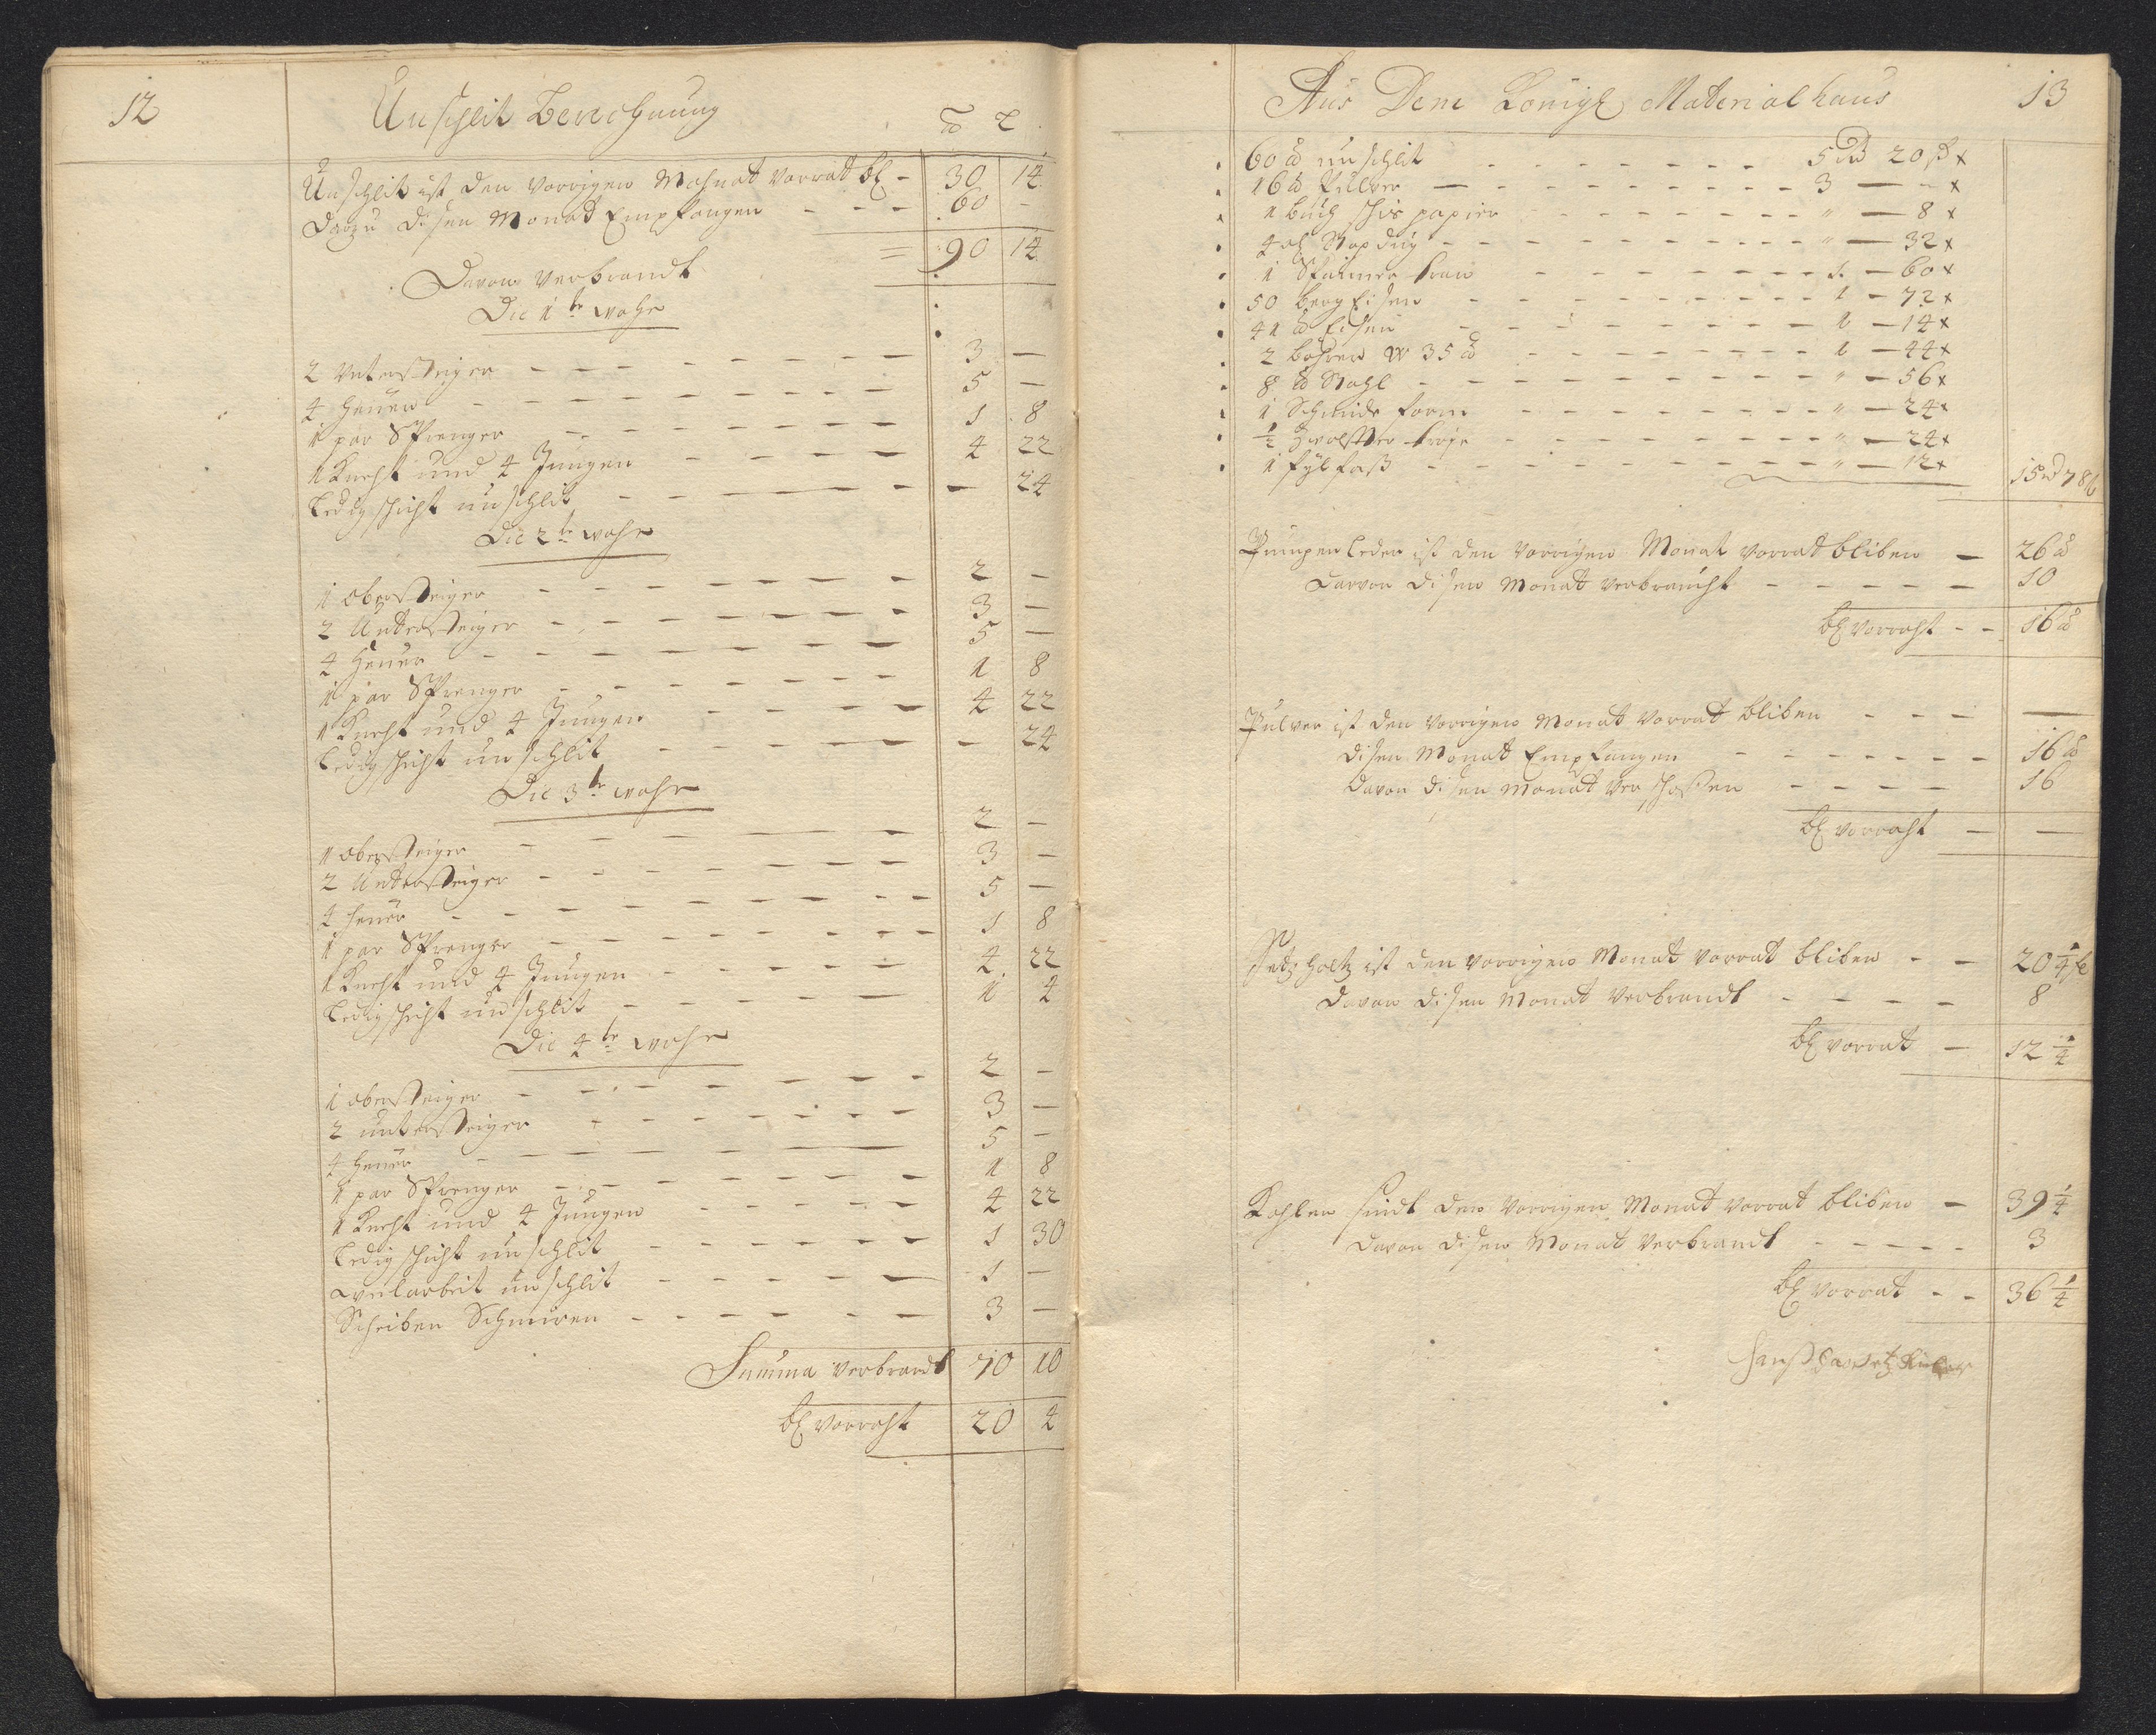 12
Unschlit Berechnung
℔ L
Unschlit ist den vorrigen Mohnat vorrat bl - 30 14
Darzu disen Monad Empfangen - - - 60 -
= 90 14
Davon verbrandt
Die 1te wohe
2 Untersteiger - - - 3 —
4 heuer - - - 5 —
1 par Sprenger - - - 1 8
1 Knecht und 4 Jungen - - - 4 22
Ledigschicht unschlit - - - — 24
Die 2te wohe
1 obersteiger - - - 2 —
2 Untersteiger - - - 3 —
4 Heuer - - - 5 —
1 par Sprenger - - - 1 8
1 Knecht und 4 Jungen - - - 4 22
Ledigschicht unschlit - - - — 24
Die 3te wohe
1 obersteiger - - - 2 —
2 Untersteiger - - - 3 —
4 heuer - - - 5 —
1 par Sprenger - - - 1 8
1 Knecht und 4 Jungen - - - 4 22
Ledigschicht unschlit - - - 1 4
Die 4te wohe
1 obersteiger - - - 2 —
2 untersteiger - - - 3 —
4 heuer - - - 5 —
1 par Sprenger - - - 1 8
1 Knecht und 4 Jungen - - - 4 22
Ledigschicht unschlit - - - 1 30
weilarbeit unschlit - - - 1 —
Scheiben Schmiren - - - 3 —
Summa verbrandt 70 10
bl vorraht 20 4
Aus Dem Königl Material haus 13
60 ℔ unschlit - - - 5 rd 20 ß x
16 ℔ Pulver - - - 3 — - x
1 buch schis papier - - - " — 8 x
4 al - - - " — 32 x
1 - - - 1 — 60 x
50 berg Eisen - - - 1 — 72 x
41 ℔ Eisen - - - 1 — 14 x
2 bohrer w 35 ℔ - - - 1 — 44 x
8 ℔ Stahl - - - " — 56 x
1 Schmide form - - - " — 24 x
1/2 - - - " — 24 x
1 fylfaß - - - " — 12 x
15 rd 78 ß
Pumpen leder ist den vorrigen Monat vorrat bliben — 26 ℔
Darvon disen Monat verbraucht - - - 10
bl vorraht - - 16 ℔
Pulver ist den vorrigen Monat vorrat bliben - - - —
disen Monat Empfangen - - - 16 ℔
Davon disen Monat verschossen - - - 16
bl vorraht — —
Setzholtz ist den vorrigen Monat vorrat bliben - - 20 1/4
Davon disen Monat verbrandt - - - 8
bl vorrat — 12 1/4
Kohlen sindt den vorrigen Monat vorrat bliben — 39 1/4
Davon disen Monat verbrandt - - - 3
bl vorrat - - 36 1/4